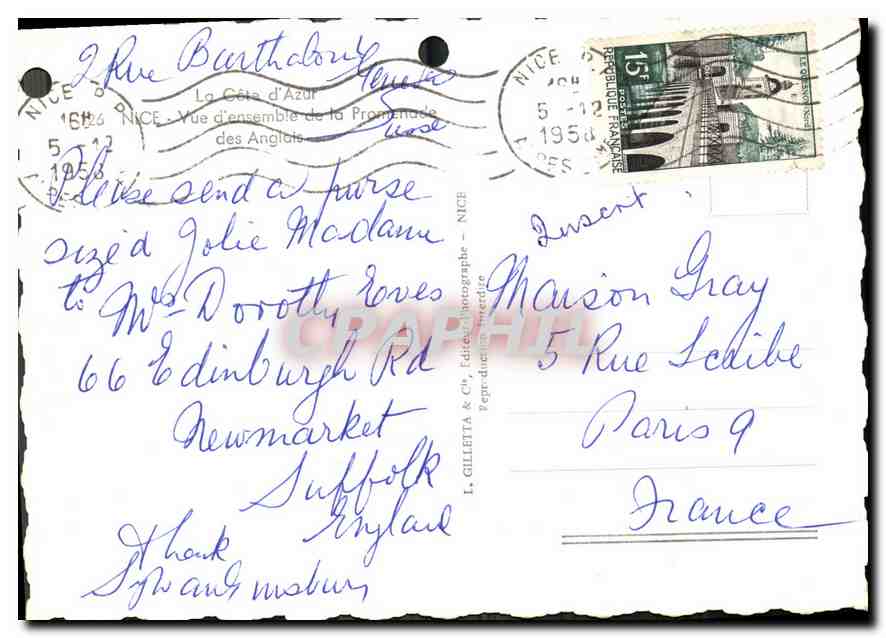 2 Rue
La Côte d'Azur
126 NICE - Vue d'ensemble de la Promenade
des Anglais
Please send a purse
sized Jolie Madame
to Mrs Dorothy Eves
66 Edinburgh Rd
Newmarket
Suffolk
England
Thank
L. GILLETTA & Cie, Editeur-Photographe - NICE
Reproduction Interdite
NICE
5 -12
1958
NICE
5 -12
1958
15F
POSTES
REPUBLIQUE FRANÇAISE
LE QUESNOY-Nord
Maison Gray
5 Rue Scribe
Paris 9
France
CPAPHIL